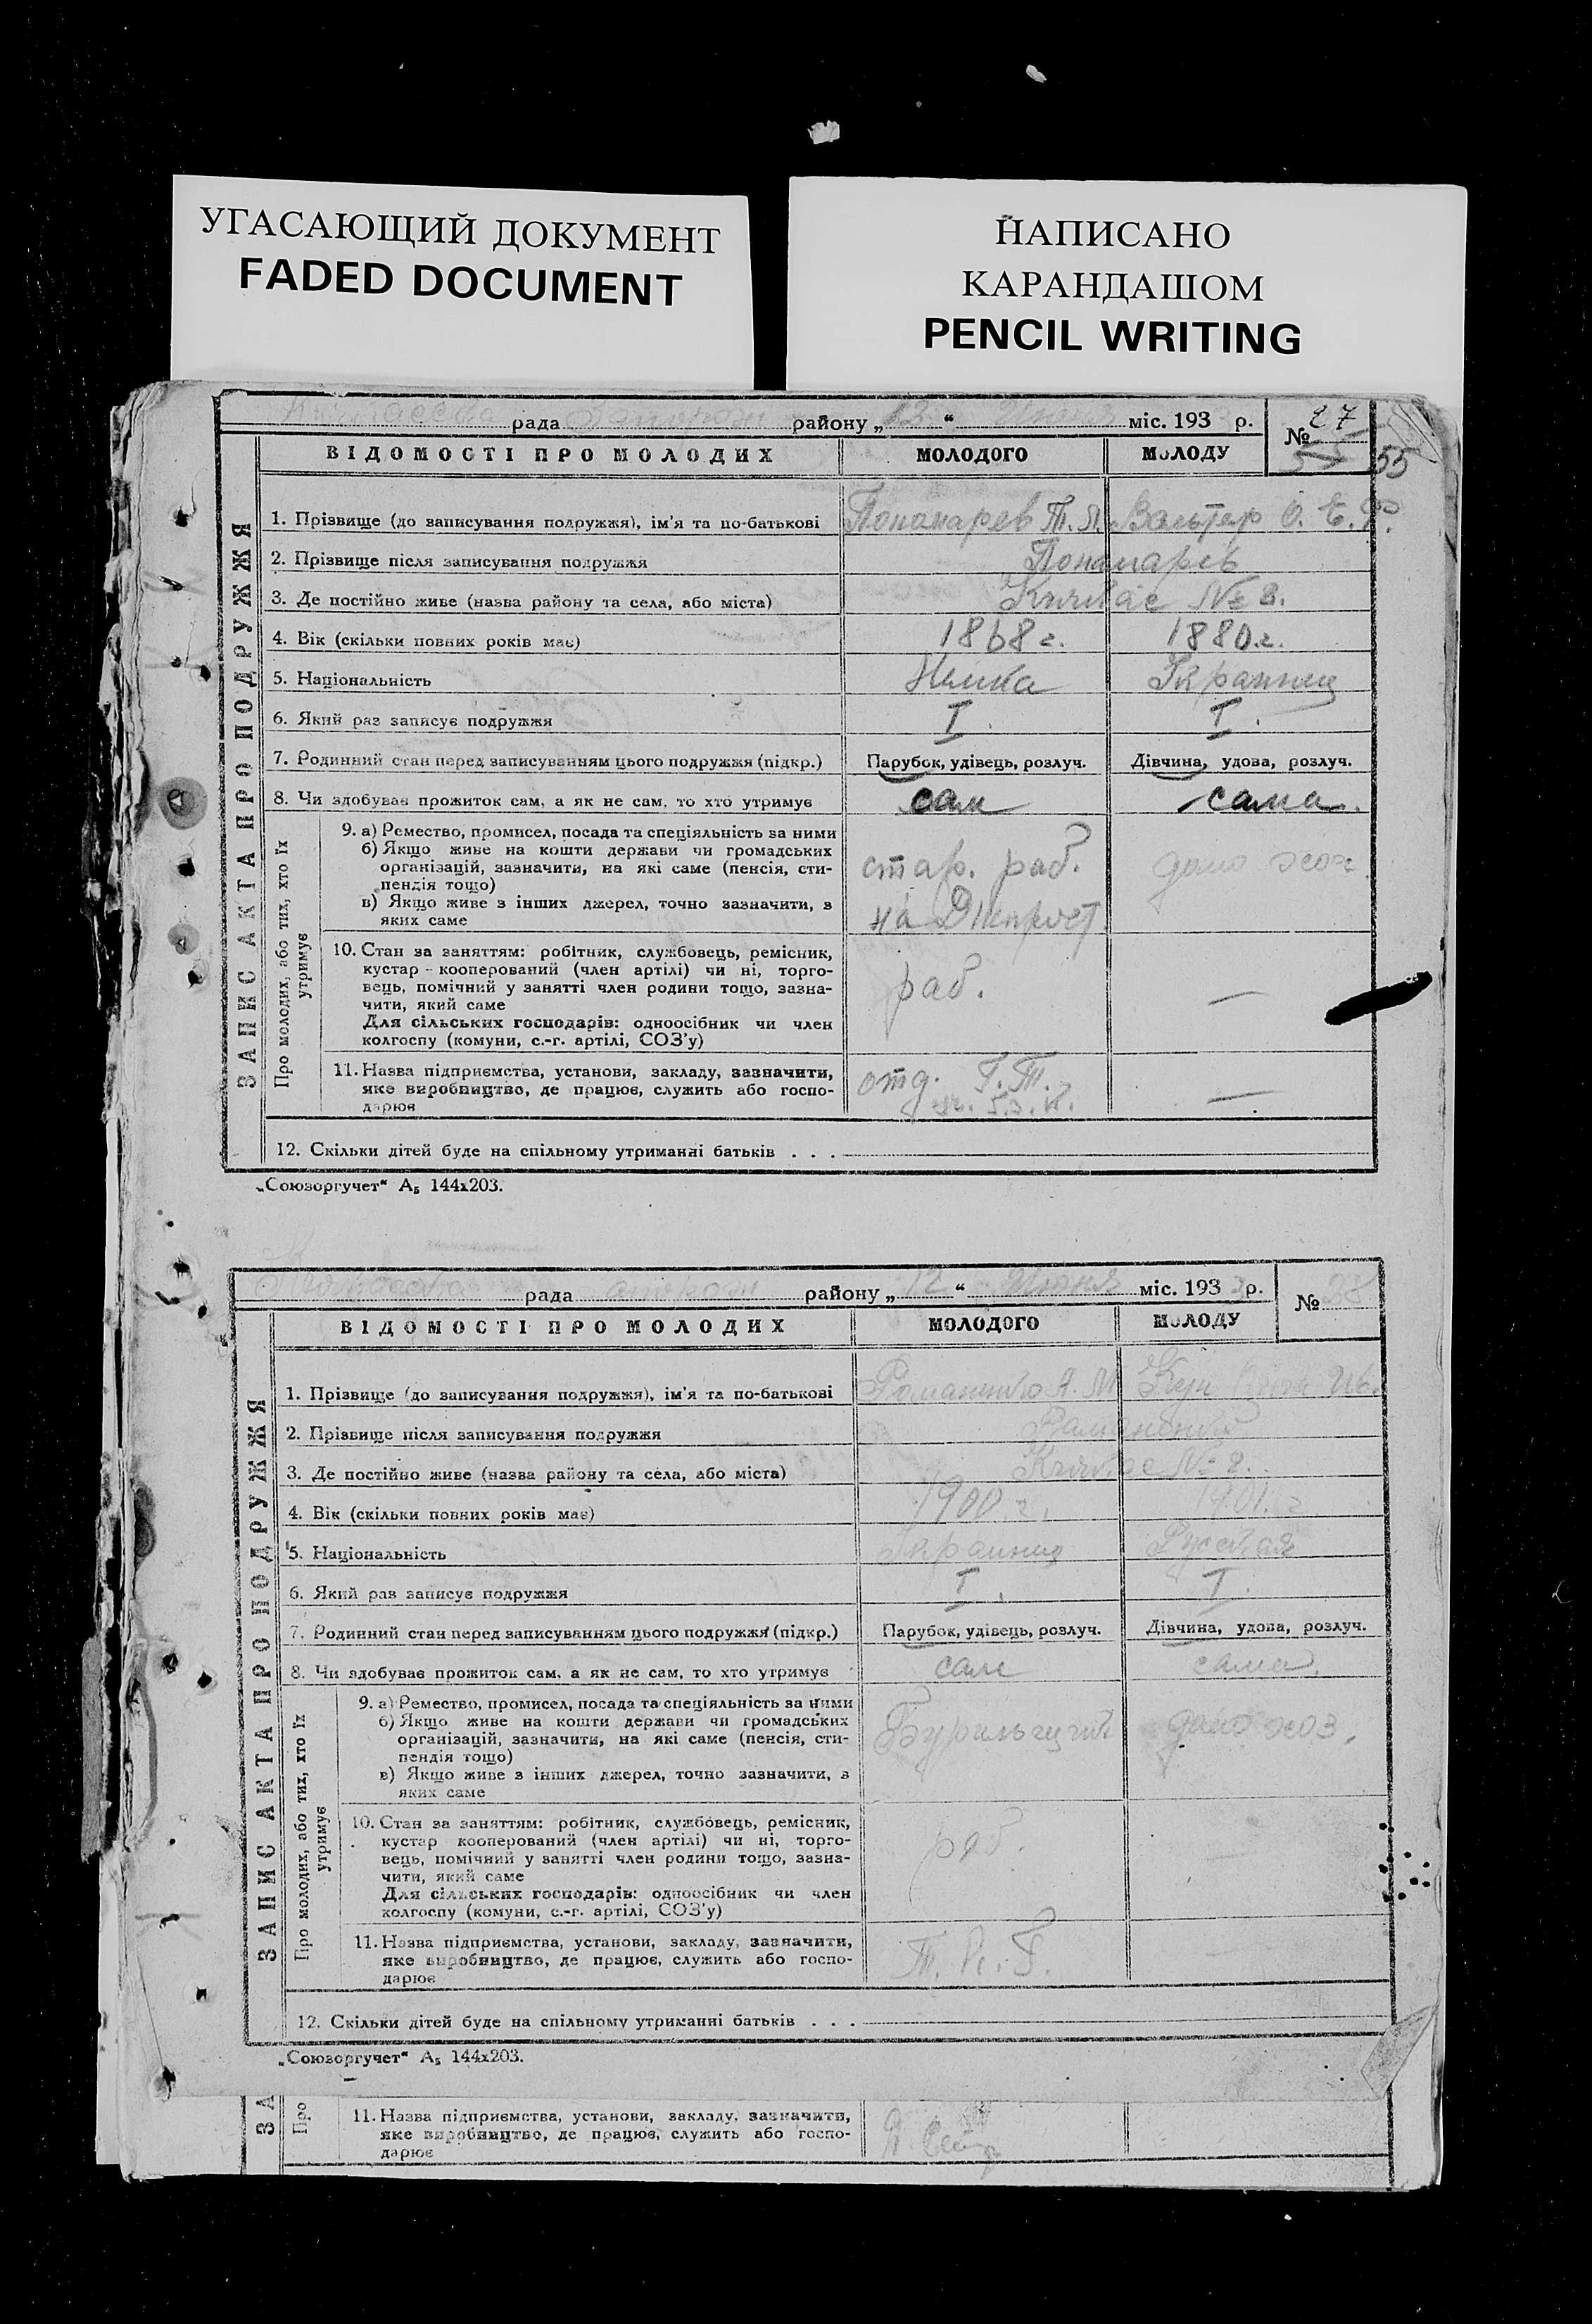 УГАСАЮЩИЙ ДОКУМЕНТ
FADED DOCUMENT
НАПИСАНО
КАРАНДАШОМ
PENCIL WRITING
рада району „ “ міс. 193 р.
№ 27
55
ВІДОМОСТІ ПРО МОЛОДИХ МОЛОДОГО МОЛОДУ
ЗАПИС АКТА ПРО ПОДРУЖЖЯ
1. Прізвище (до записування подружжя), ім'я та по-батькові Пономарев Т. П. Вальтер О. Е. Р.
2. Прізвище після записування подружжя Пономарев
3. Де постійно живе (назва району та села, або міста) Кичкас № 2.
4. Вік (скільки повних років має) 1868 г. 1880 г.
5. Національність Немка Украинец
6. Який раз записує подружжя I. I.
7. Родинний стан перед записуванням цього подружжя (підкр.) Парубок, удівець, розлуч. Дівчина, удова, розлуч.
8. Чи здобуває прожиток сам, а як не сам, то хто утримує сам сама.
Про молодих, або тих, хто їх
утримує
9. а) Ремество, промисел, посада та спеціяльність за ними
б) Якщо живе на кошти держави чи громадських
організацій, зазначити, на які саме (пенсія, сти-
пендія тощо)
в) Якщо живе з інших джерел, точно зазначити, з
яких саме
стар. раб. домо хоз.
на Днепрост.
10. Стан за заняттям: робітник, службовець, ремісник,
кустар - кооперований (член артілі) чи ні, торго-
вець, помічний у занятті член родини тощо, зазна-
чити, який саме
Для сільських господарів: одноосібник чи член
колгоспу (комуни, с.-г. артілі, СОЗ'у)
раб. —
11. Назва підприємства, установи, закладу, зазначити,
яке виробництво, де працює, служить або госпо-
дарює
отд. Г. Т. —
12. Скільки дітей буде на спільному утриманні батьків . . .
„Союзоргучет“ А₅ 144х203.
рада району „ 12 “ Июня міс. 193 3 р.
№ 28
ВІДОМОСТІ ПРО МОЛОДИХ МОЛОДОГО МОЛОДУ
ЗАПИС АКТА ПРО ПОДРУЖЖЯ
1. Прізвище (до записування подружжя), ім'я та по-батькові Романенко А. М. Ив.
2. Прізвище після записування подружжя Романенко
3. Де постійно живе (назва району та села, або міста) Кичкас № 2.
4. Вік (скільки повних років має) 1900 г. 1901 г.
5. Національність Украинец Русская
6. Який раз записує подружжя I. I.
7. Родинний стан перед записуванням цього подружжя (підкр.) Парубок, удівець, розлуч. Дівчина, удова, розлуч.
8. Чи здобуває прожиток сам, а як не сам, то хто утримує сам сама.
Про молодих, або тих, хто їх
утримує
9. а) Ремество, промисел, посада та спеціяльність за ними
б) Якщо живе на кошти держави чи громадських
організацій, зазначити, на які саме (пенсія, сти-
пендія тощо)
в) Якщо живе з інших джерел, точно зазначити, з
яких саме
Бурильщик домо хоз.
10. Стан за заняттям: робітник, службовець, ремісник,
кустар кооперований (член артілі) чи ні, торго-
вець, помічний у занятті член родини тощо, зазна-
чити, який саме
Для сільських господарів: одноосібник чи член
колгоспу (комуни, с.-г. артілі, СОЗ'у)
раб.
11. Назва підприємства, установи, закладу, зазначити,
яке виробництво, де працює, служить або госпо-
дарює
12. Скільки дітей буде на спільному утриманні батьків . . .
„Союзоргучет“ А₅ 144х203.
ЗА
Про
11. Назва підприємства, установи, закладу, зазначити,
яке виробництво, де працює, служить або госпо-
дарює